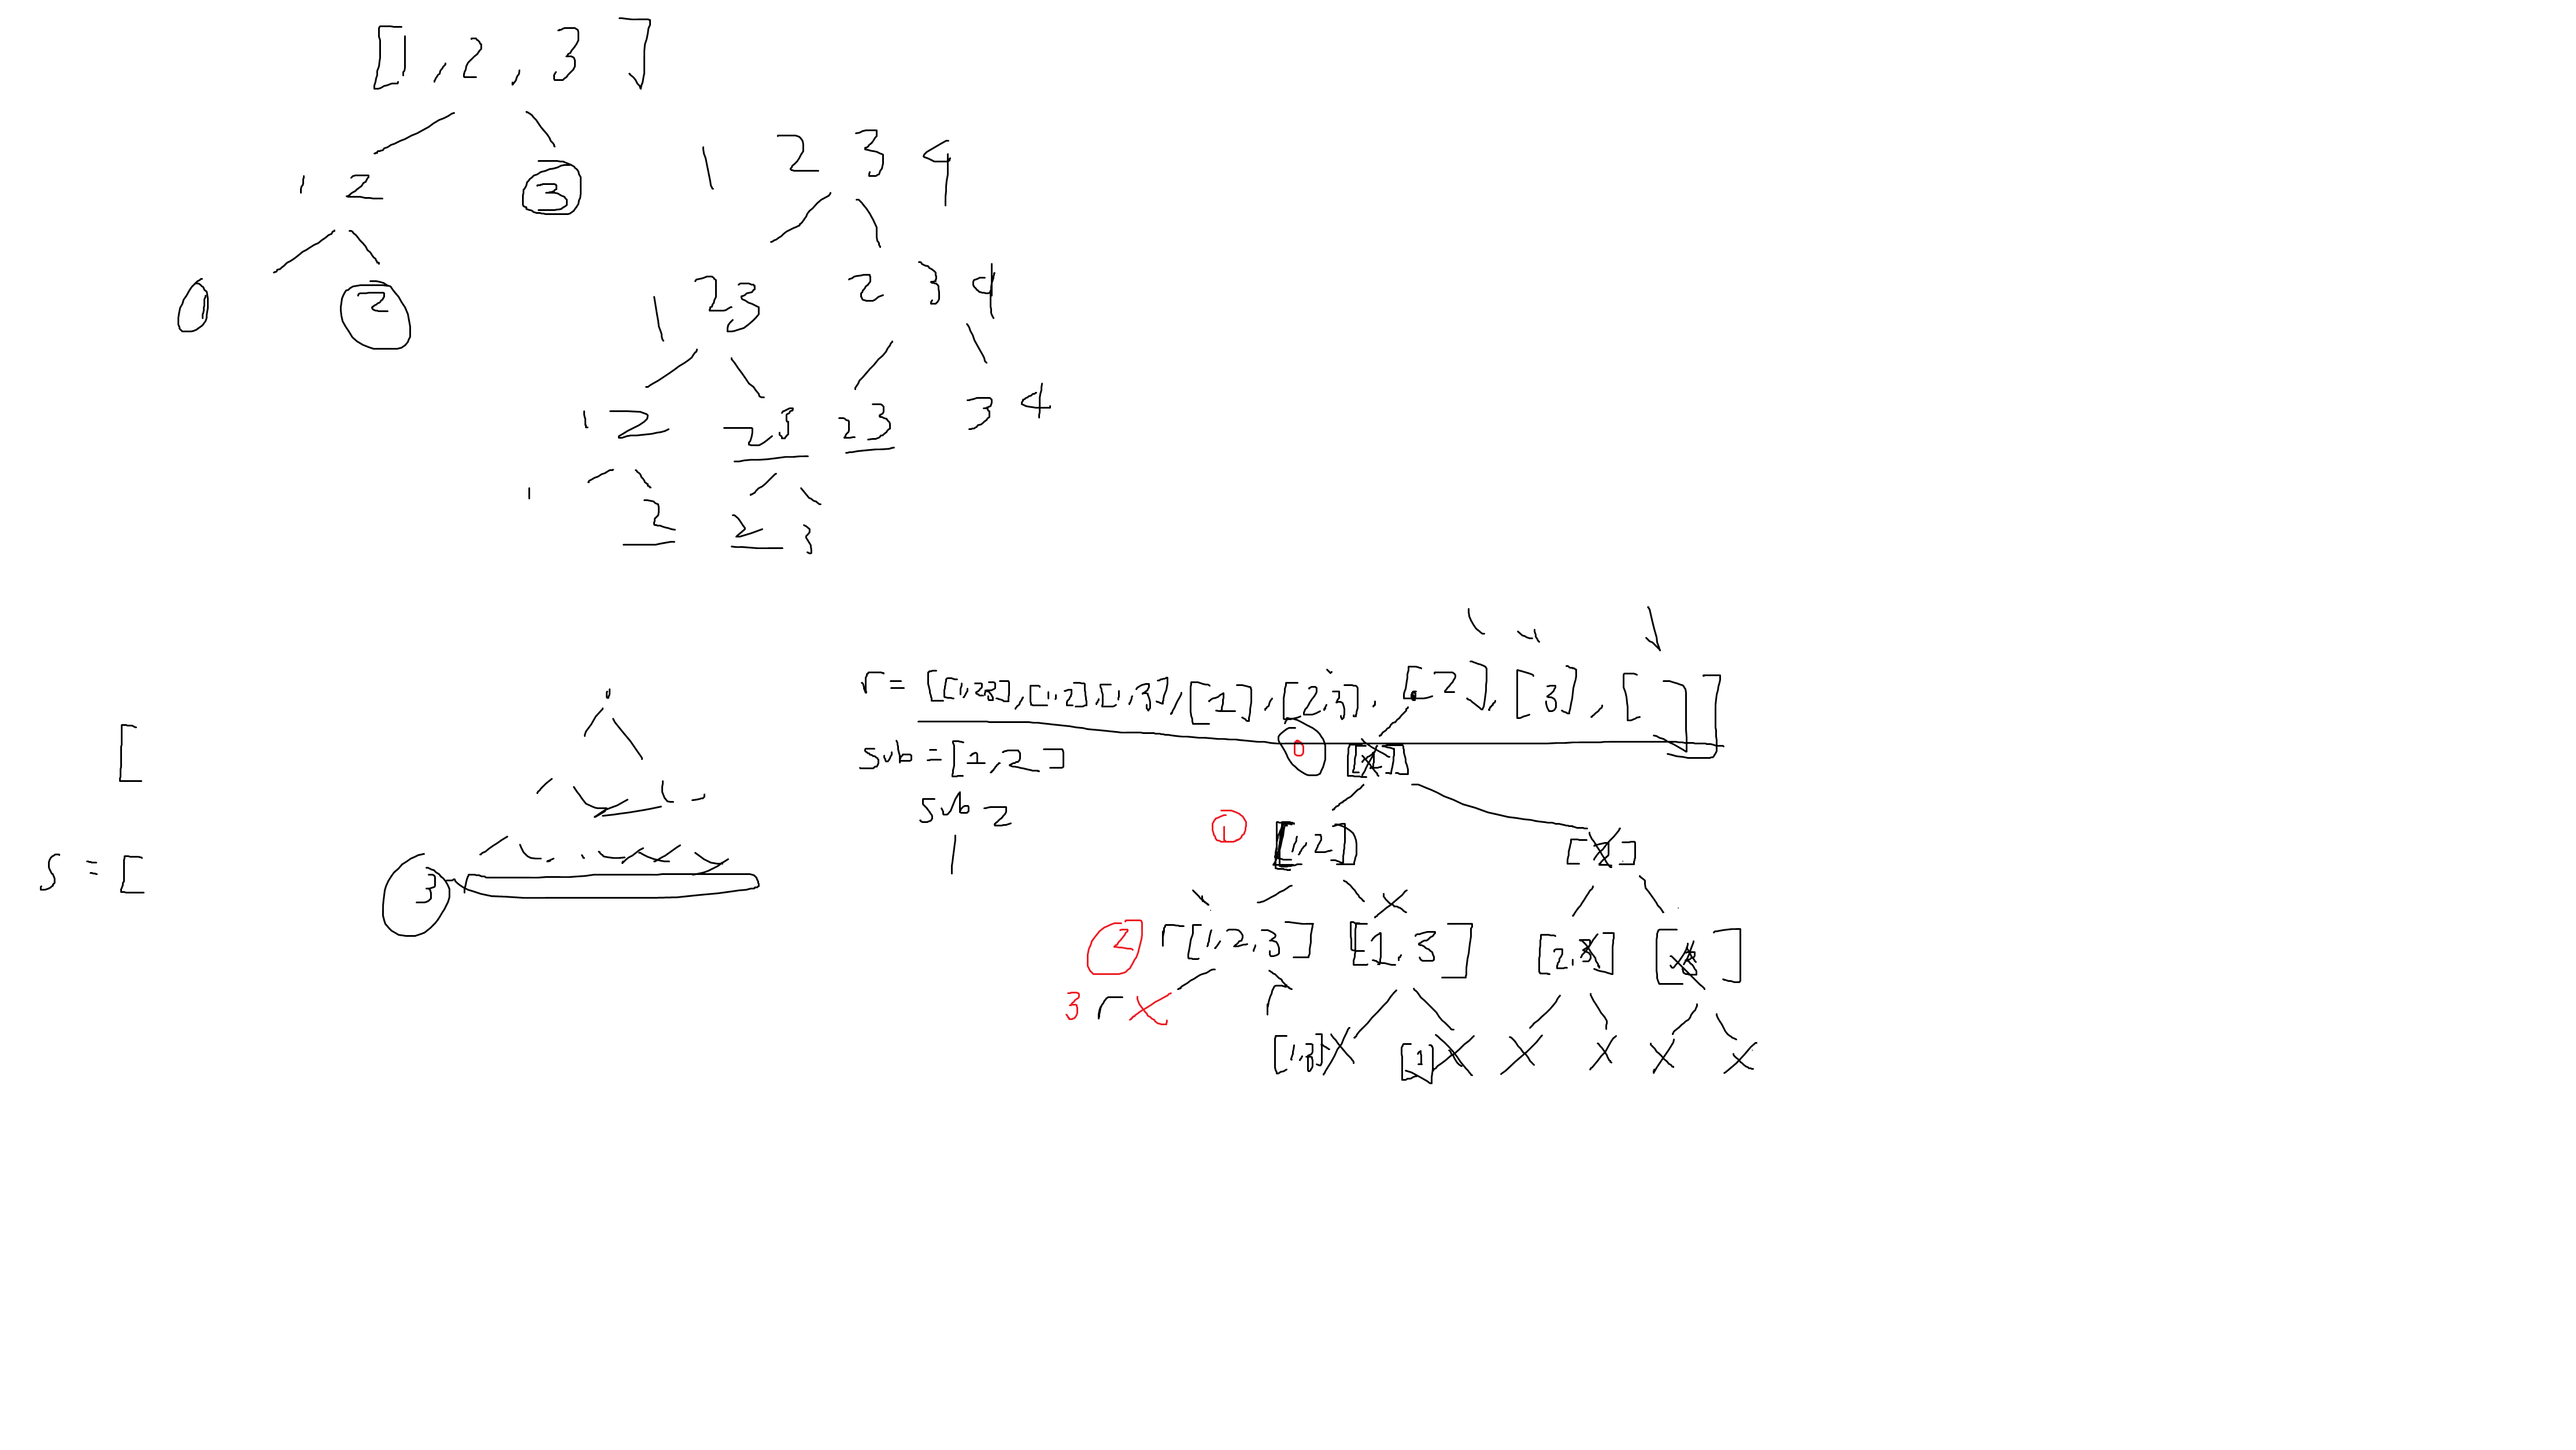 [1,2,3]
1 2
3
1 2 3 4
1
2
1 2 3
2 3 4
1 2
2 3
2 3
3 4
1
2
2 3
r = [[1,2,3],[1,2],[1,3],[1],[2,3],[2],[3],[ ]]
[
sub = [1,2]
0
sub 2
1
1
[1,2]
s = [
3
2
r[1,2,3]
[1,3]
[2,3]
3 r
r
[1,3]
[1]